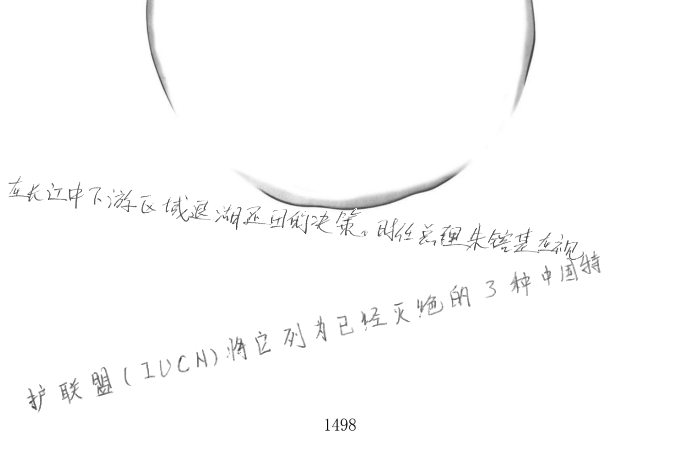 在长江中下游区域退湖还田的决策。时任总理朱镕基在视
护联盟(IUCN)将它列为已经灭绝的3种中国特
1498